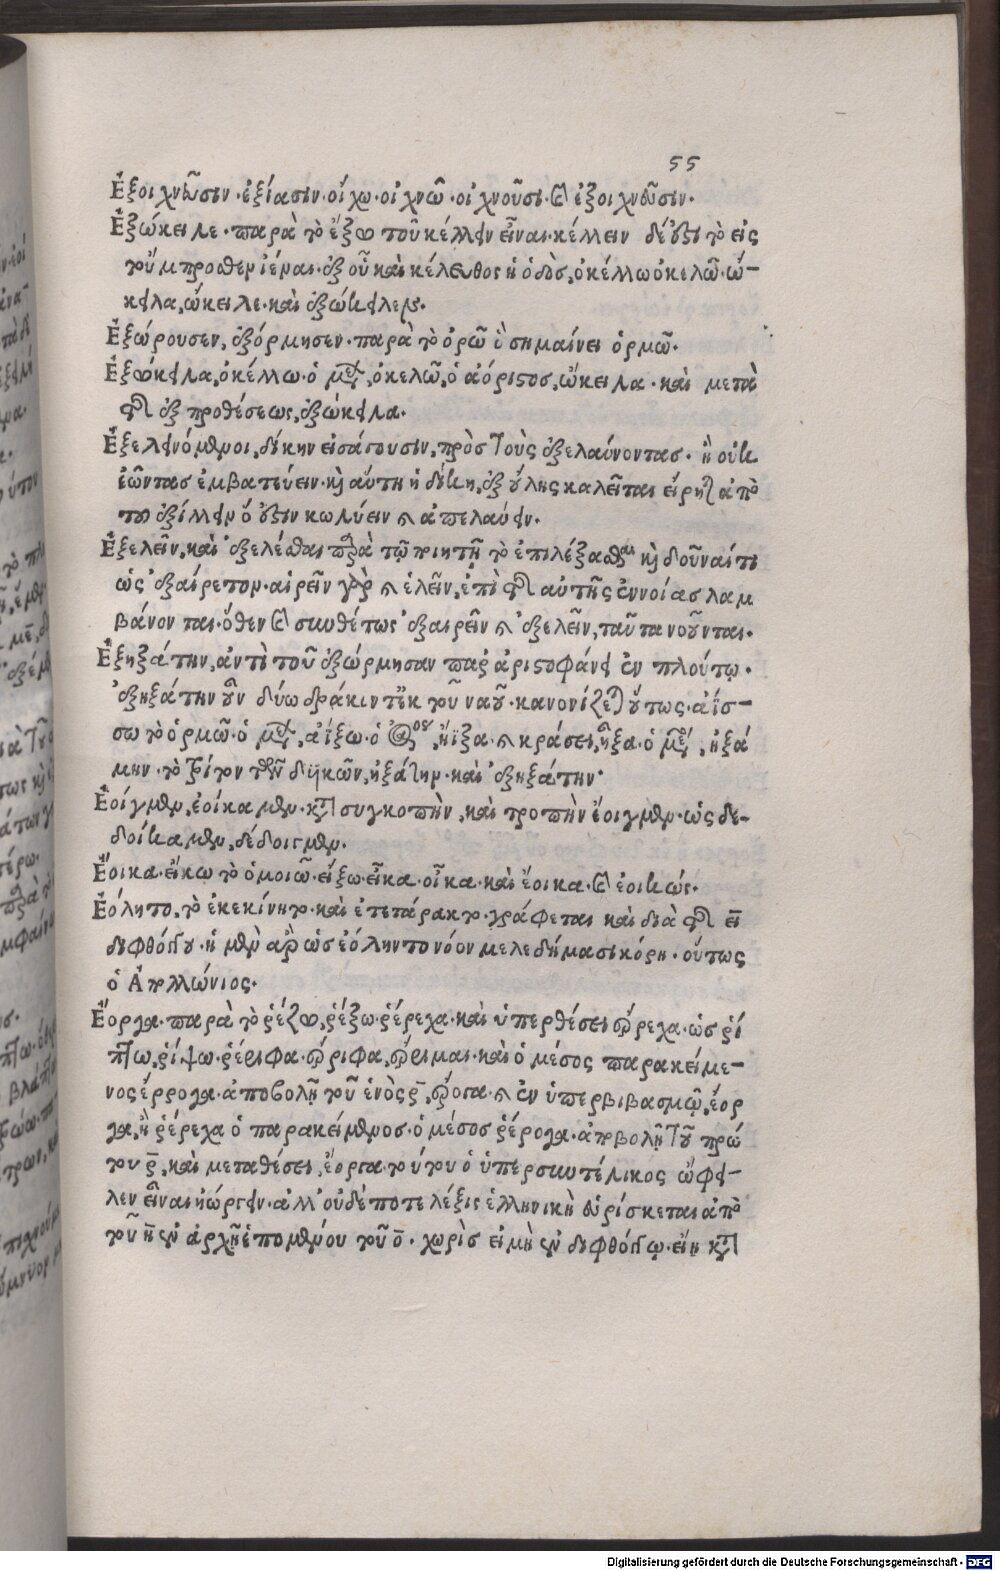 55
Ἐξοιχνεῦσιν· ἐξίασιν· οἴχω· οἰχνῶ· οἰχνοῦσι· καὶ ἐξοιχνεῦσιν.
Ἐξώκειλε· παρὰ τὸ ἔξω τοῦ κέλλειν εἶναι· κέλλειν δέ ὅστι τὸ εἰς
τοὔμπροσθεν ἰέναι· ἐξ οὗ καὶ κέλευθος ἡ ὁδὸς, ὀκέλλω ὀκελῶ· ὤ-
κειλα, ὤκειλε· καὶ ἐξώκειλεν.
Ἐξώρουσεν, ἐξόρμησεν· παρὰ τὸ ὀρῶ ὃ σημαίνει ὁρμῶ.
Ἐξώκειλα, ὀκέλλω· ὁ μέλλων, ὀκελῶ, ὁ ἀόριστος, ὤκειλα· καὶ μετὰ
τῆς ἐξ προθέσεως, ἐξώκειλα.
δίκην εἰσάγουσιν, πρὸς τοὺς ἐξελαύνοντας· ἢ οὐκ
ἐῶντας ἐμβατεύειν· καὶ αὕτη ἡ δίκη, ἐξούλης καλεῖται εἴρηται ἀπὸ
τοῦ ἐξίλλειν ὅ ἐστιν κωλύειν καὶ ἀπελαύειν.
Ἐξελεῖν, καὶ ἐξελέσθαι παρὰ τῷ ποιητῇ τὸ ἐπιλέξασθαι καὶ δοῦναί τι
ὡς ἐξαίρετον· αἱρεῖν γὰρ καὶ ἑλεῖν, ἐπὶ τῆς αὐτῆς ἐννοίας λαμ
βάνονται· ὅθεν καὶ συνθέτως ἐξαιρεῖν καὶ ἐξελεῖν, ταῦτα νοοῦνται.
Ἐξηξάτην, ἀντὶ τοῦ ἐξώρμησαν παρ᾽ ἀριστοφάνει ἐν πλούτῳ.
ἐξηξάτην οὖν δύω δράκοντ᾽ ἐκ τοῦ ναοῦ· κανονίζεται οὕτως· ἀΐσ-
σω τὸ ὁρμῶ· ὁ μέλλων, ἀΐξω· ὁ ἀόριστος, ἤϊξα· καὶ κράσει, ᾖξα· ὁ μέσος, ᾐξά
μην· τὸ τρίτον τῶν δυϊκῶν, ᾐξάτην· καὶ ἐξηξάτην·
Ἐοίγμεν, ἐοίκαμεν· κατὰ συγκοπὴν, καὶ τροπὴν ἔοιγμεν· ὡς δε-
δοίκαμεν, δέδοιγμεν.
Ἔοικα· εἴκω τὸ ὁμοιῶ· εἴξω· εἶκα· οἶκα· καὶ ἔοικα· καὶ ἐοικώς.
Ἐόλητο, τὸ ἐκεκίνητο· καὶ ἐτετάρακτο· γράφεται καὶ διὰ τῆς ει
διφθόγγου· ἡ μὲν ἄρ ὡς ἐόλητο νόον μελεδήμασι κόρη· οὕτως
ὁ Ἀπολλώνιος.
Ἔοργα· παρὰ τὸ ῥέζω, ῥέξω· ῥέρεχα· καὶ ὑπερθέσει ἔρρεχα· ὡς ῥί
πτω, ῥίψω· ῥέριφα· ἔρριφα, ἔρριμαι· καὶ ὁ μέσος παρακείμε-
νος ἔρρογα· ἀποβολῇ τοῦ ἑνὸς ρ̅, ἔρογα· καὶ ἐν ὑπερβιβασμῷ, ἔορ
γα, ἢ ῥέρεχα ὁ παρακείμενος· ὁ μέσος ῥέρογα· ἀποβολῇ τοῦ πρώ
του ρ̅, καὶ μεταθέσει, ἔοργα· τούτου ὁ ὑπερσυντέλικος ὤφει-
λεν εἶναι ἠώργειν· ἀλλ᾽ οὐδέποτε λέξις ἑλληνικὴ εὑρίσκεται ἀπὸ
τοῦ η̅ ἐν ἀρχῇ ἑπομένου τοῦ ο̅· χωρὶς εἰ μὴ ἐν διφθόγγῳ· εἴη κατὰ
Digitalisierung gefördert durch die Deutsche Forschungsgemeinschaft - DFG